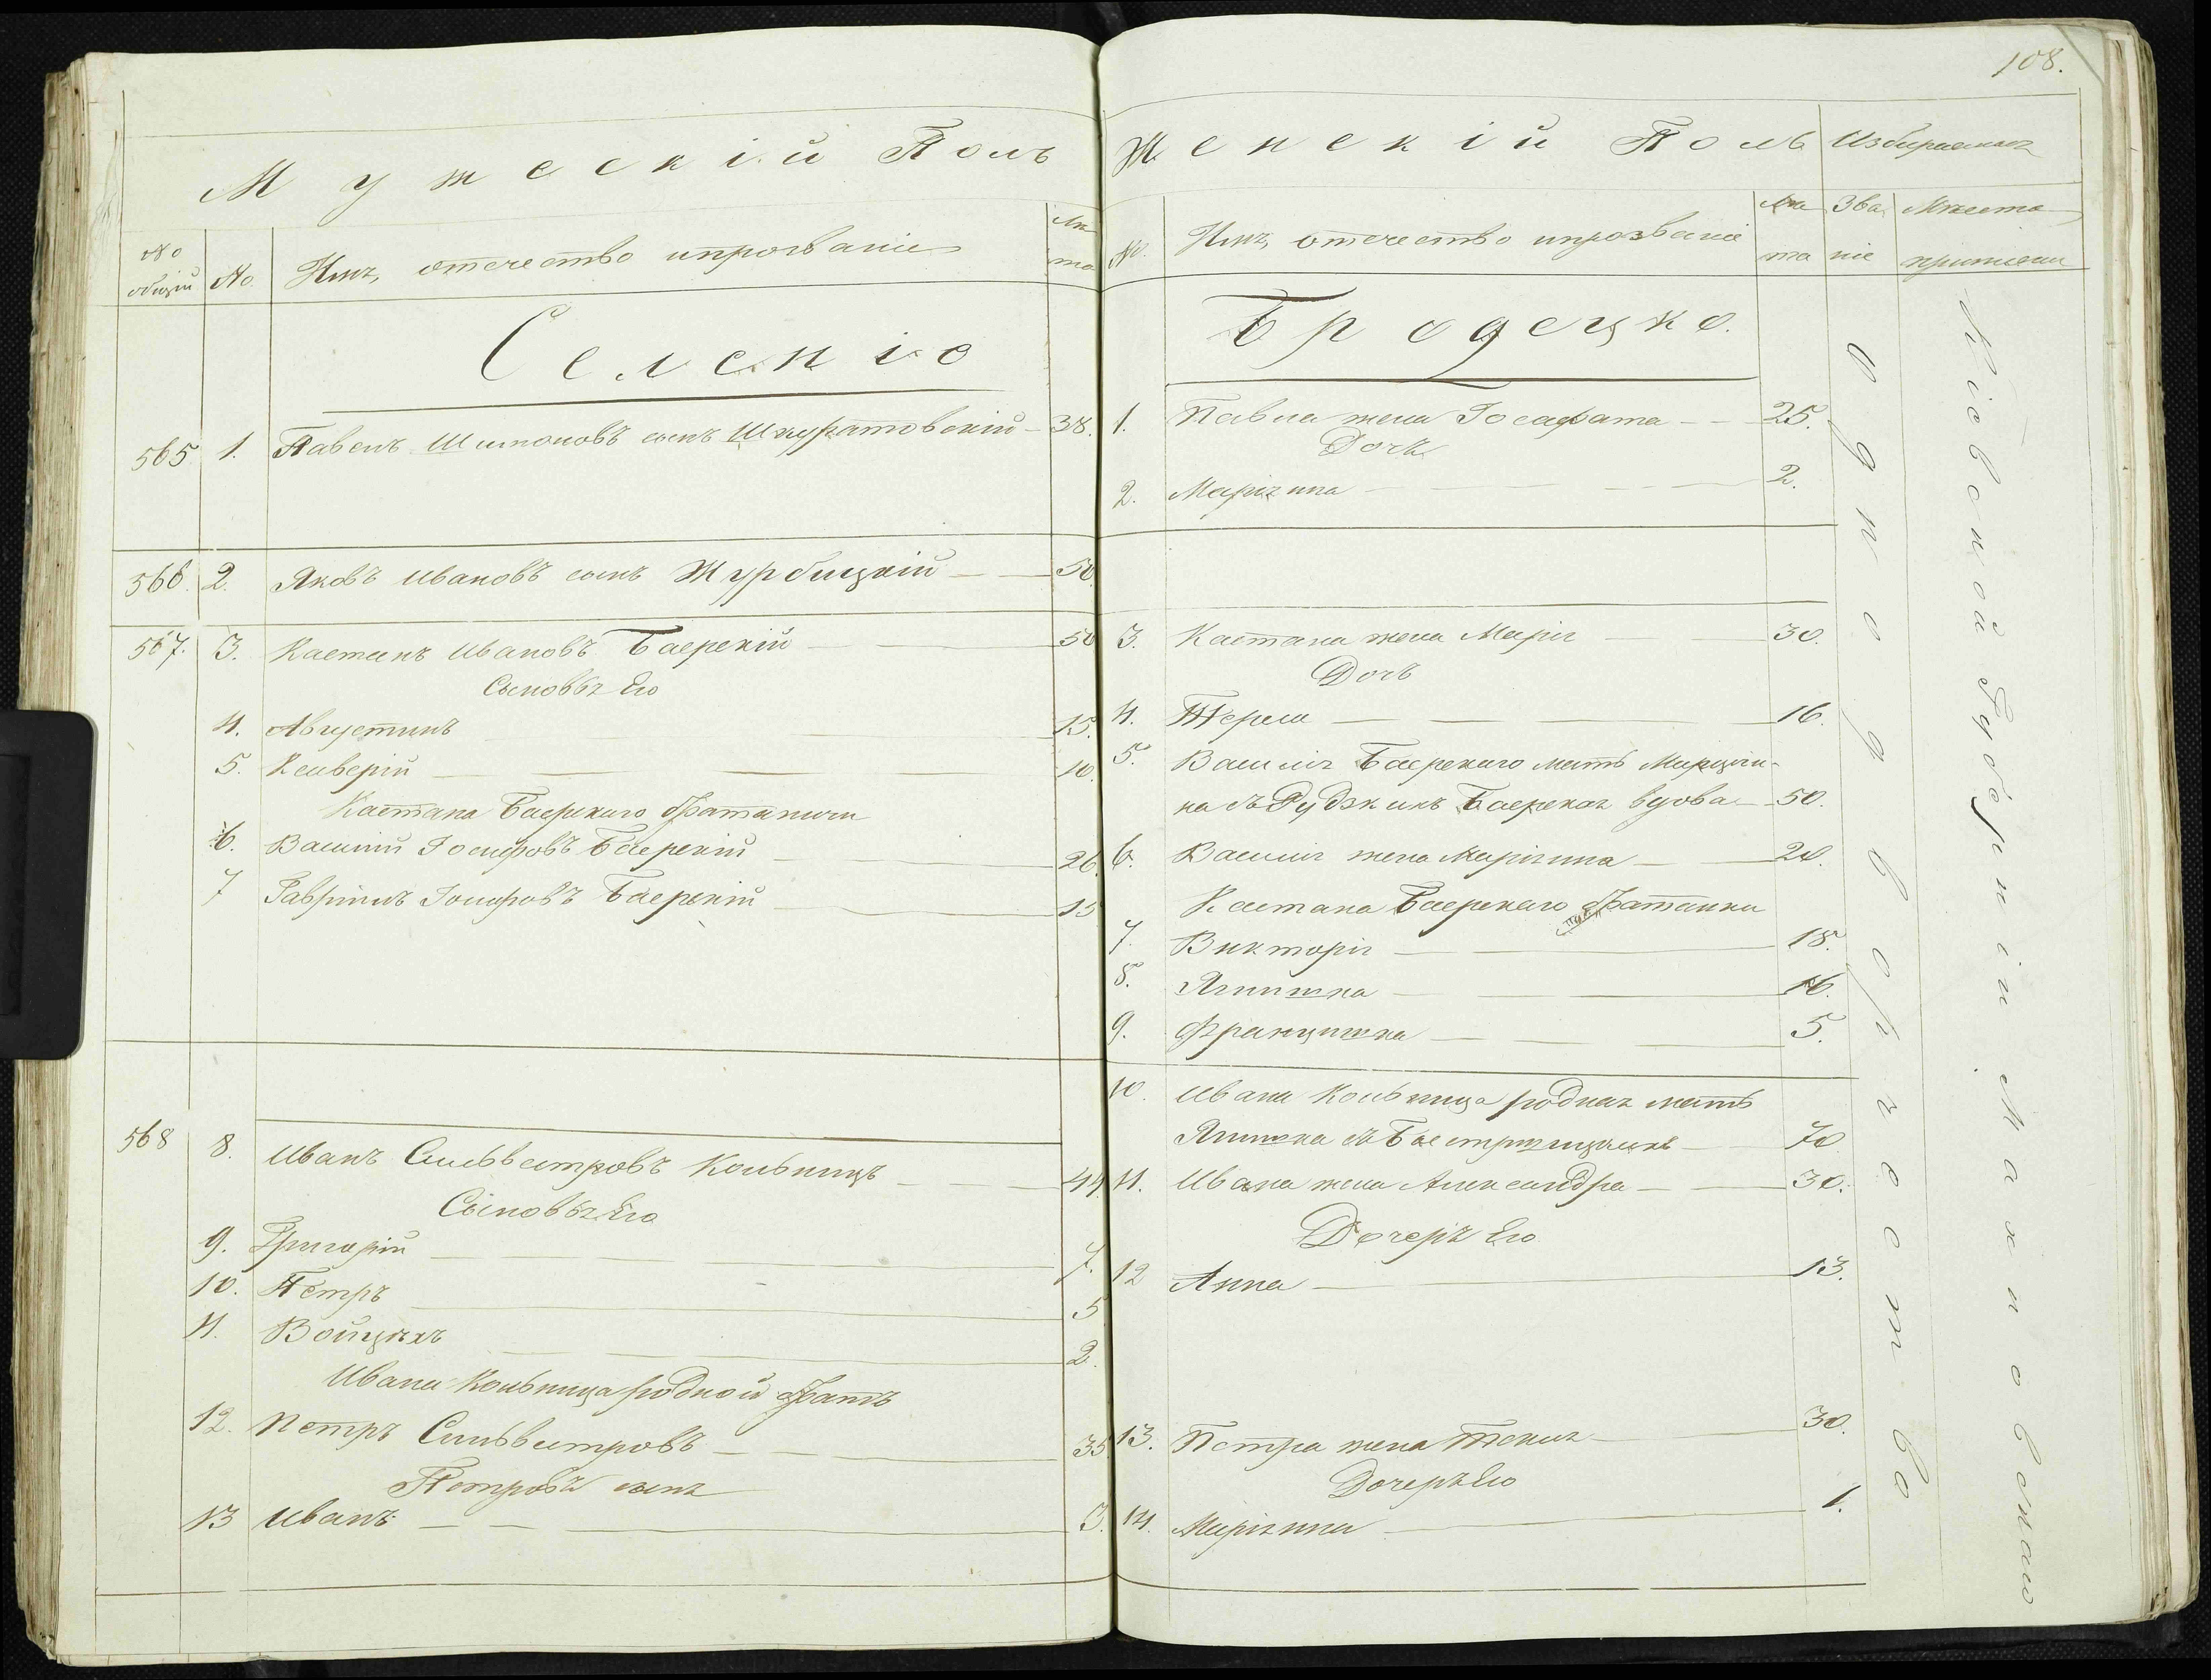 108.
Мужескій Полъ
№ общій
№
Имя, отечество и прозваніе
Лѣта
Селеніе
565 1. Павелъ Шимоновъ сынъ Шкуратовскій 38.
566. 2. Яковъ Ивановъ сынъ Журбицкій 50.
567. 3. Каетанъ Ивановъ Баерскій 50
Сыновья Его
4. Августинъ 15.
5. Ксаверій 10.
Каетана Баерскаго братаничи
6. Василій Іосифовъ Баерскій 26.
7 Гавріилъ Іосифовъ Баерскій 15
568 8. Иванъ Сильвестровъ Кольницъ 44
Сыновья Его
9. Григорій 7.
10. Петръ 5
11. Войцѣхъ 2.
Ивана Кольница родной братъ
12. Петръ Сильвестровъ 35
Петровъ сынъ
13 Иванъ 3.
Женскій Полъ
Избираемыя
№.
Имя, отечество и прозваніе
Лѣта
Званіе
Мѣста приписки
Бродецкое.
1. Павла жена Іосафата 25.
Дочь
2. Маріянна 2.
3. Каетана жена Марія 30.
Дочь
4. Текля 16.
5. Василія Баерскаго мать Марціян-
на съ Рудзкихъ Баерская вдова 50.
6. Василія жена Маріянна 20.
Каетана Баерскаго братанки
7. Викторія 18.
8. Ягнишка 16.
9. Францишка 5.
10. Ивана Кольница родная мать
Ягнишка съ 70
11. Ивана жена Александра 30.
Дочерь Его
12 Анна 13.
13. Петра жена Текля 30.
Дочерь Его
14. Маріянна 1.
Однодворчество
Кіевской Губерніи Махновскаго